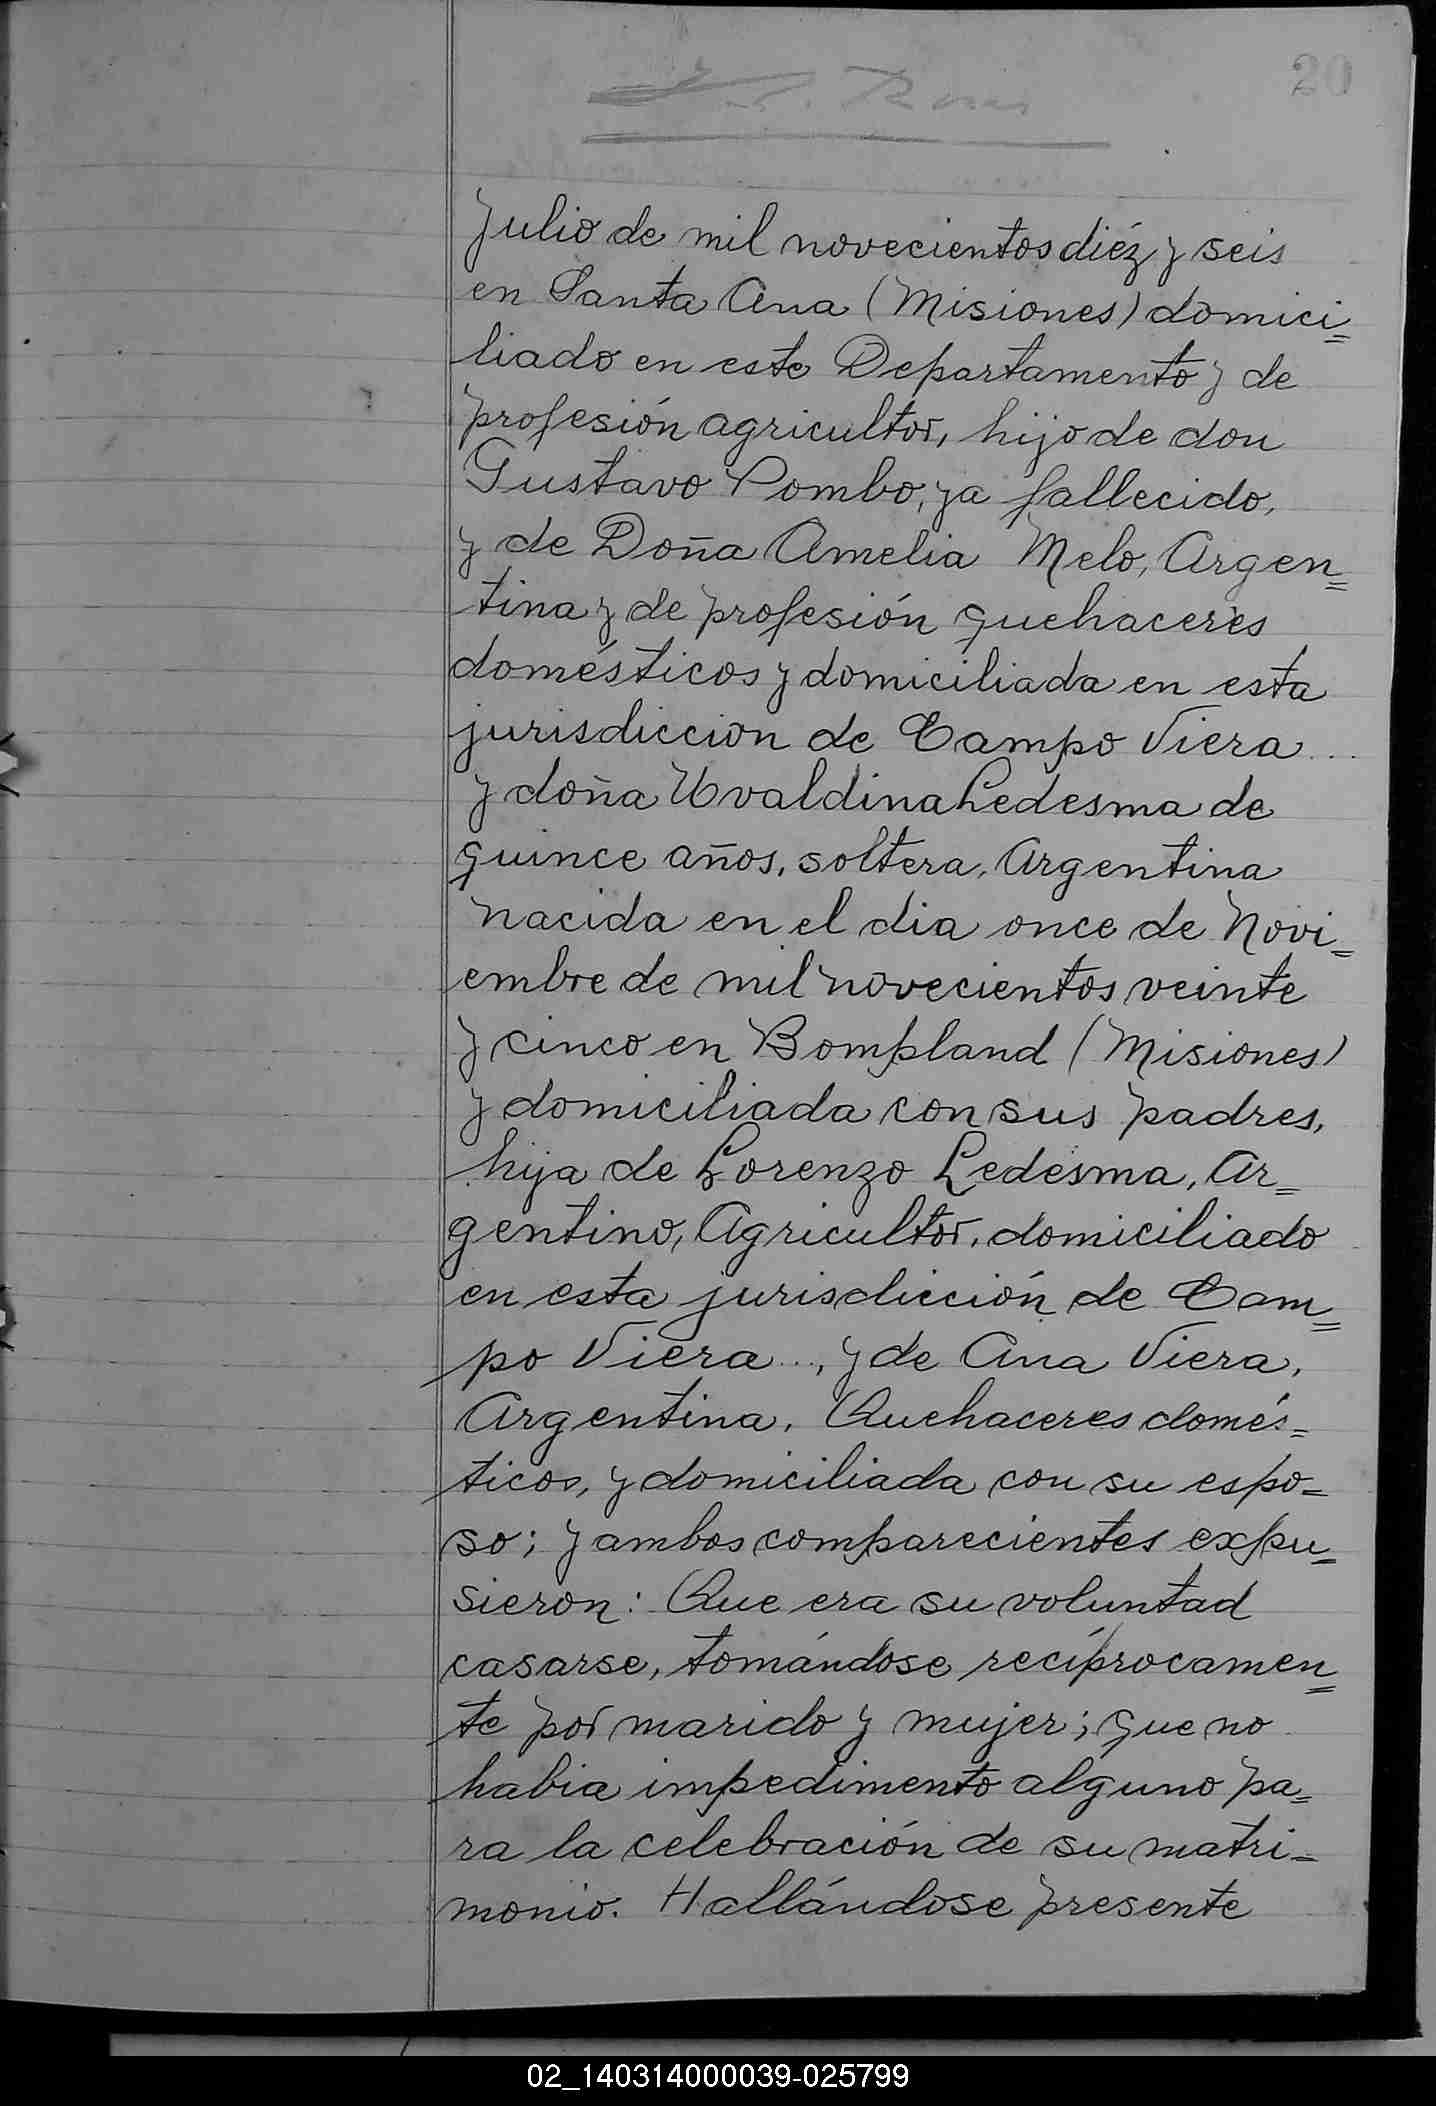 20
Julio de mil novecientos diéz y seis
en Santa Ana (Misiones) domici=
liado en este Departamento y de
profesión agricultor, hijo de don
Gustavo Pombo, ya fallecido,
y de Doña Amelia Melo, Argen=
tina y de profesión quehaceres
domésticos y domiciliada en esta
jurisdiccion de Campo Viera...
y doña Uvaldina Ledesma de
quince años, soltera, Argentina
nacida en el dia once de Novi=
embre de mil novecientos veinte
y cinco en Bompland (Misiones)
y domiciliada con sus padres,
hija de Lorenzo Ledesma, Ar=
gentino, Agricultor, domiciliado
en esta jurisdicción de Cam=
po Viera..., y de Ana Viera,
Argentina, Quehaceres domés=
ticos, y domiciliada con su espo=
so; y ambos comparecientes expu=
sieron: Que era su voluntad
casarse, tomándose recíprocamen=
te por marido y mujer; que no
habia impedimento alguno pa=
ra la celebración de su matri=
monio. Hallándose presente
02_140314000039-025799